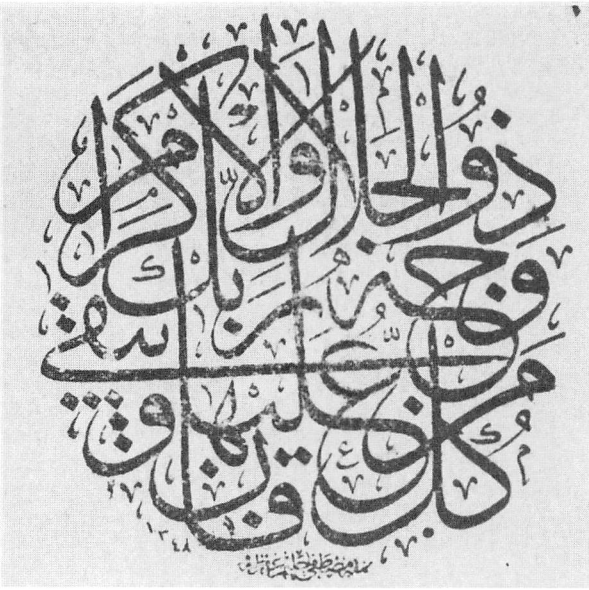 كُلُّ مَنْ عَلَيْهَا فَانٍ
وَيَبْقَى وَجْهُ رَبِّكَ
ذُو الْجَلَالِ وَالْاِكْرَامِ
١٣٤٨